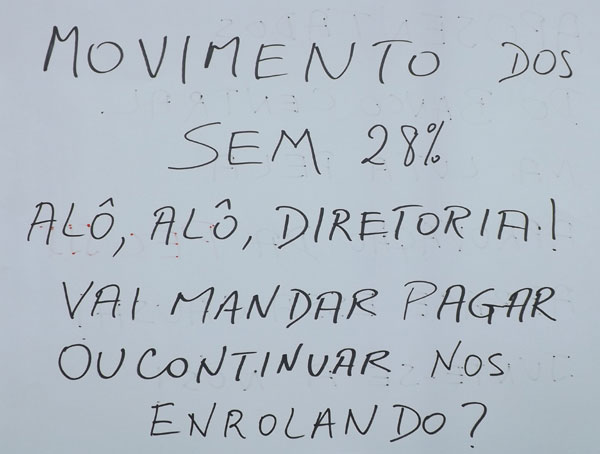 MOVIMENTO DOS
SEM 28%
ALÔ, ALÔ, DIRETORIA!
VAI MANDAR PAGAR
OU CONTINUAR NOS
ENROLANDO?